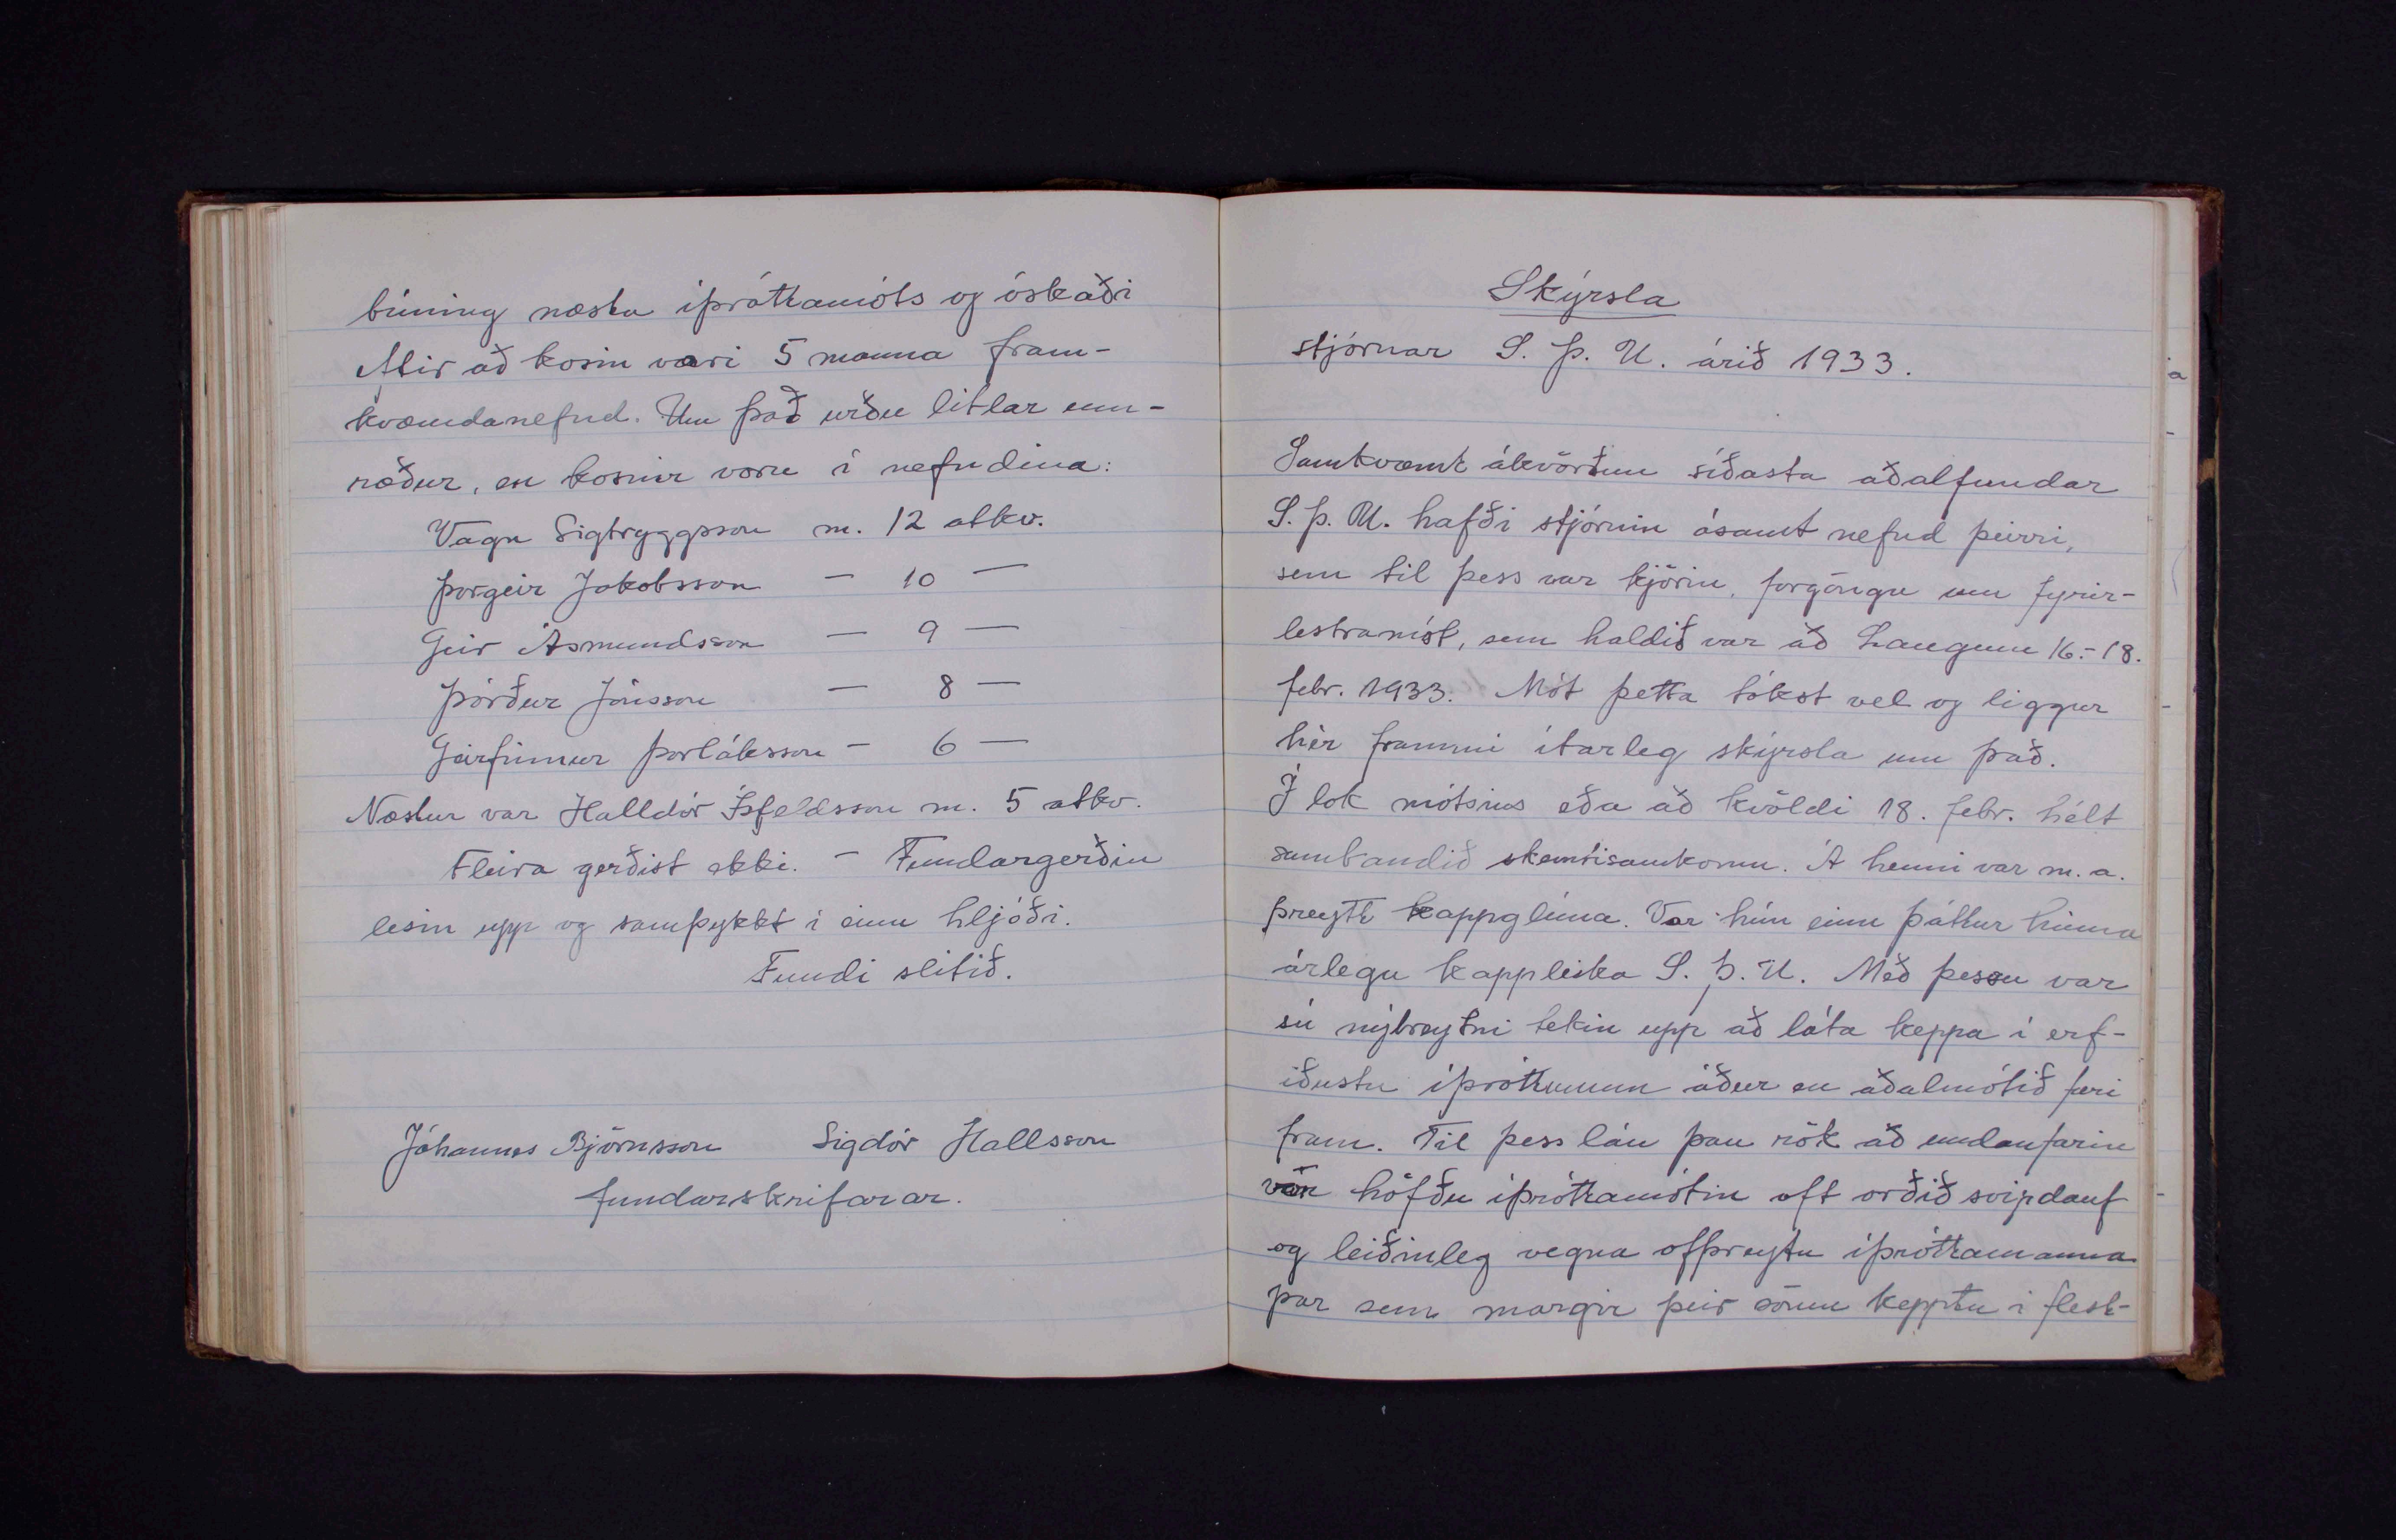 búning næsta íþróttamóts og óskaði
eftir að kosin væri 5 manna fram-
kvæmdanefnd. Um það urðu litlar um-
ræður, en kosnir voru í nefndina:
Vagn Sigtryggsson m. 12 atkv.
Þorgeir Jakobsson — 10 —
Geir Ásmundsson — 9 —
Þórður Jónsson — 8 —
Geirfinnur Þorláksson — 6 —
Næstur var Halldór Ísfeldsson m. 5 atkv.
Fleira gerðist ekki. — Fundargerðin
lesin upp og samþykkt í einu hljóði.
Fundi slitið.
Jóhannes Björnsson Sigdór Hallsson
fundarskrifarar.
Skýrsla
stjórnar S. Þ. U. árið 1933.
Samkvæmt ákvörðun síðasta aðalfundar
S. Þ. U. hafði stjórnin ásamt nefnd þeirri,
sem til þess var kjörin, forgöngu um fyrir-
lestramót, sem haldið var að Laugum 16.-18.
febr. 1933. Mót þetta tókst vel og liggur
hér frammi ítarleg skýrsla um það.
Í lok mótsins eða að kvöldi 18. febr. hélt
sambandið skemtisamkomu. Á henni var m. a.
þreytt kappglíma. Var hún einn þáttur hinna
árlegu kappleika S. Þ. U. Með þessu var
sú nýbreytni tekin upp að láta keppa í erf-
iðustu íþróttunum áður en aðalmótið færi
fram. Til þess láu þau rök að undanfarin
vor höfðu íþróttamótin oft orðið svipdauf
og leiðinleg vegna ofþreytu íþróttamanna
þar sem margir þeir sömu kepptu í flest-